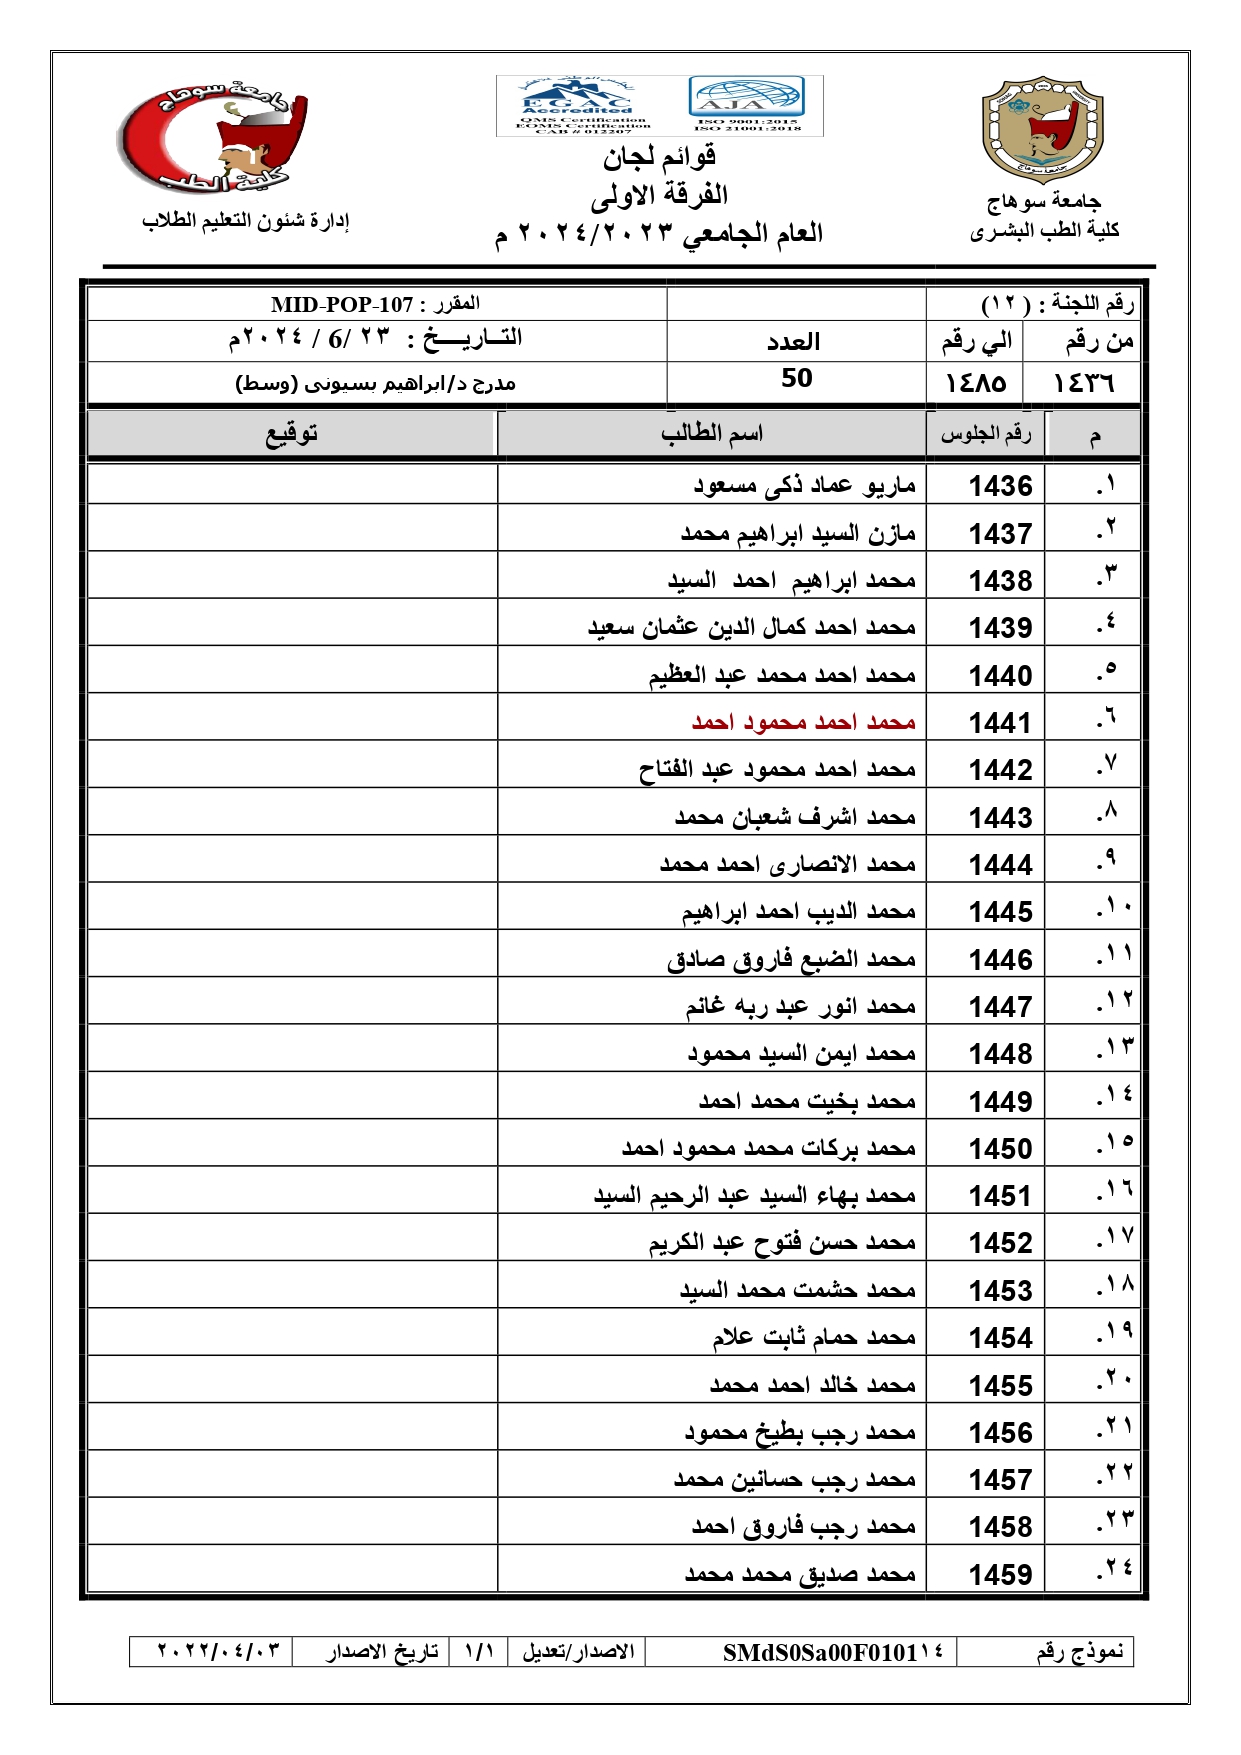 جامعة سوهاج
كلية الطب
EGAC
Accredited
QMS Certification
EOMS Certification
CAB # 012207
AJA
ISO 9001:2015
ISO 21001:2018
جامعة سوهاج
جامعة سوهاج
كلية الطب البشرى
قوائم لجان
الفرقة الاولى
العام الجامعي ٢٠٢٤/٢٠٢٣ م
إدارة شئون التعليم الطلاب
رقم اللجنة : ( ١٢) المقرر : MID-POP-107
من رقم الي رقم العدد التـاريـــخ : ٢٣ /6 / ٢٠٢٤م
١٤٣٦ ١٤٨٥ 50 مدرج د/ابراهيم بسيونى (وسط)
م رقم الجلوس اسم الطالب توقيع
١. 1436 ماريو عماد ذكى مسعود
٢. 1437 مازن السيد ابراهيم محمد
٣. 1438 محمد ابراهيم احمد السيد
٤. 1439 محمد احمد كمال الدين عثمان سعيد
٥. 1440 محمد احمد محمد عبد العظيم
٦. 1441 محمد احمد محمود احمد
٧. 1442 محمد احمد محمود عبد الفتاح
٨. 1443 محمد اشرف شعبان محمد
٩. 1444 محمد الانصارى احمد محمد
١٠. 1445 محمد الديب احمد ابراهيم
١١. 1446 محمد الضبع فاروق صادق
١٢. 1447 محمد انور عبد ربه غانم
١٣. 1448 محمد ايمن السيد محمود
١٤. 1449 محمد بخيت محمد احمد
١٥. 1450 محمد بركات محمد محمود احمد
١٦. 1451 محمد بهاء السيد عبد الرحيم السيد
١٧. 1452 محمد حسن فتوح عبد الكريم
١٨. 1453 محمد حشمت محمد السيد
١٩. 1454 محمد حمام ثابت علام
٢٠. 1455 محمد خالد احمد محمد
٢١. 1456 محمد رجب بطيخ محمود
٢٢. 1457 محمد رجب حسانين محمد
٢٣. 1458 محمد رجب فاروق احمد
٢٤. 1459 محمد صديق محمد محمد
نموذج رقم SMdS0Sa00F0101١٤ الاصدار/تعديل ١/١ تاريخ الاصدار ٢٠٢٢/٠٤/٠٣